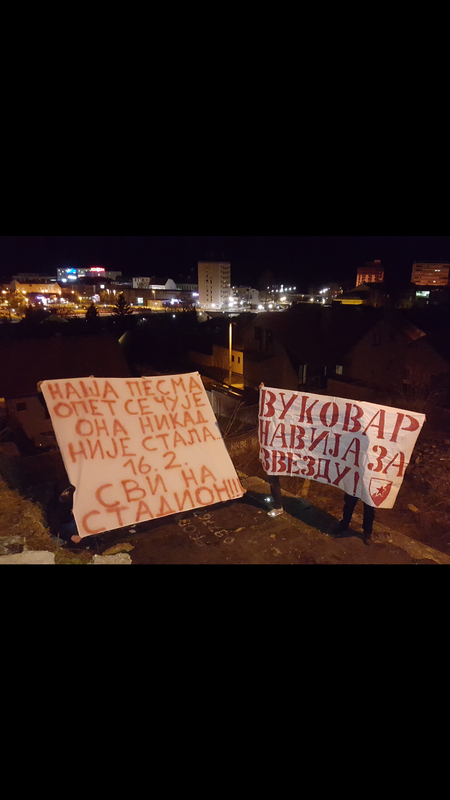 НАША ПЕСМА
ОПЕТ СЕ ЧУЈЕ
ОНА НИКАД
НИЈЕ СТАЛА...
16. 2.
СВИ НА
СТАДИОН!!!
ВУКОВАР
НАВИЈА ЗА
ЗВЕЗДУ!